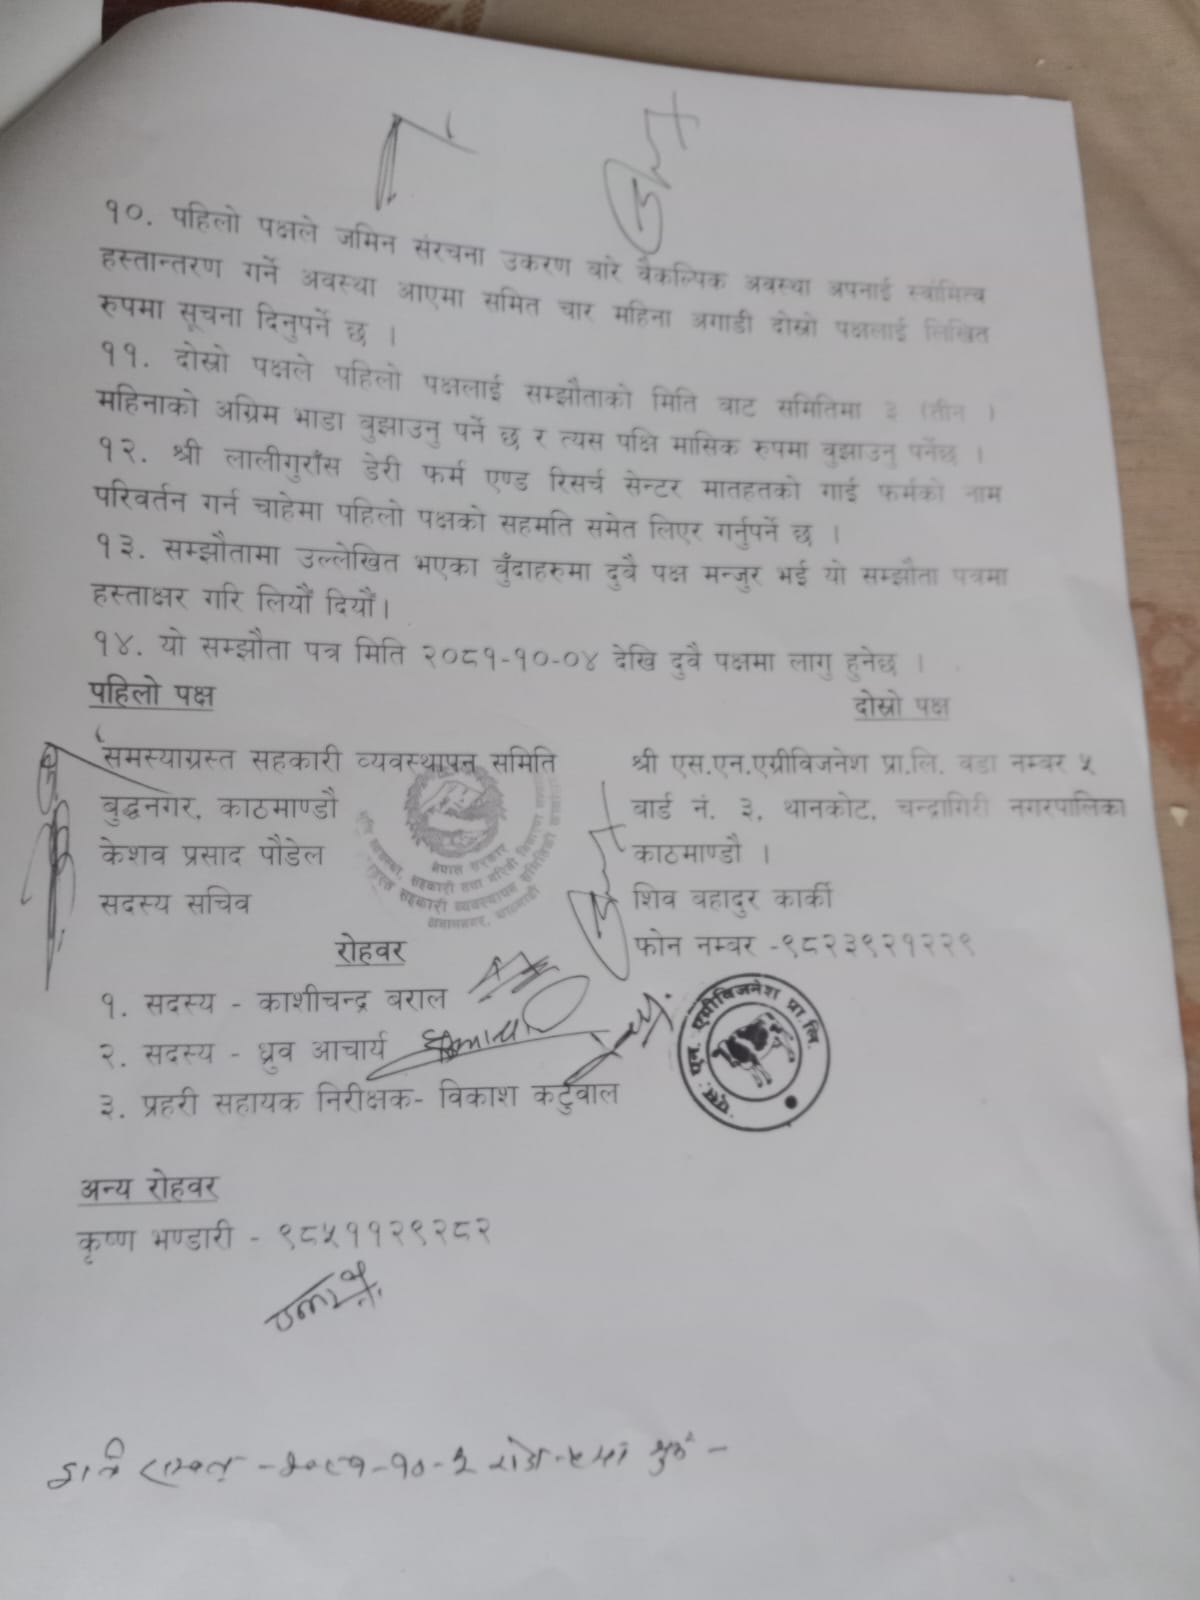 १०. पहिलो पक्षले जमिन संरचना उकरण बारे वैकल्पिक अवस्था अपनाई स्वामित्व
हस्तान्तरण गर्ने अवस्था आएमा समित चार महिना अगाडी दोस्रो पक्षलाई लिखित
रुपमा सूचना दिनुपर्ने छ ।
११. दोस्रो पक्षले पहिलो पक्षलाई सम्झौताको मिति बाट समितिमा ३ (तीन ।
महिनाको अग्रिम भाडा बुझाउनु पर्ने छ र त्यस पक्षि मासिक रुपमा बुझाउनु पर्नेछ ।
१२. श्री लालीगुराँस डेरी फर्म एण्ड रिसर्च सेन्टर मातहतको गाई फर्मको नाम
परिवर्तन गर्न चाहेमा पहिलो पक्षको सहमति समेत लिएर गर्नुपर्ने छ ।
१३. सम्झौतामा उल्लेखित भएका बुँदाहरुमा दुबै पक्ष मन्जुर भई यो सम्झौता पत्रमा
हस्ताक्षर गरि लियौं दियौं।
१४. यो सम्झौता पत्र मिति २०८१-१०-०४ देखि दुवै पक्षमा लागु हुनेछ ।
पहिलो पक्ष
दोस्रो पक्ष
समस्याग्रस्त सहकारी व्यवस्थापन समिति
बुद्धनगर, काठमाण्डौ
केशव प्रसाद पौडेल
सदस्य सचिव
नेपाल सरकार
श्री एस.एन.एग्रीविजनेश प्रा.लि. वडा नम्बर ५
वार्ड नं. ३, थानकोट, चन्द्रागिरी नगरपालिका
काठमाण्डौ ।
शिव बहादुर कार्की
फोन नम्बर -९८२३९२१२२९
रोहवर
१. सदस्य - काशीचन्द्र बराल
२. सदस्य - ध्रुव आचार्य
३. प्रहरी सहायक निरीक्षक- विकाश कटुवाल
एस. एन. एग्रीविजनेश प्रा. लि.
अन्य रोहवर
कृष्ण भण्डारी - ९८५११२९२८२